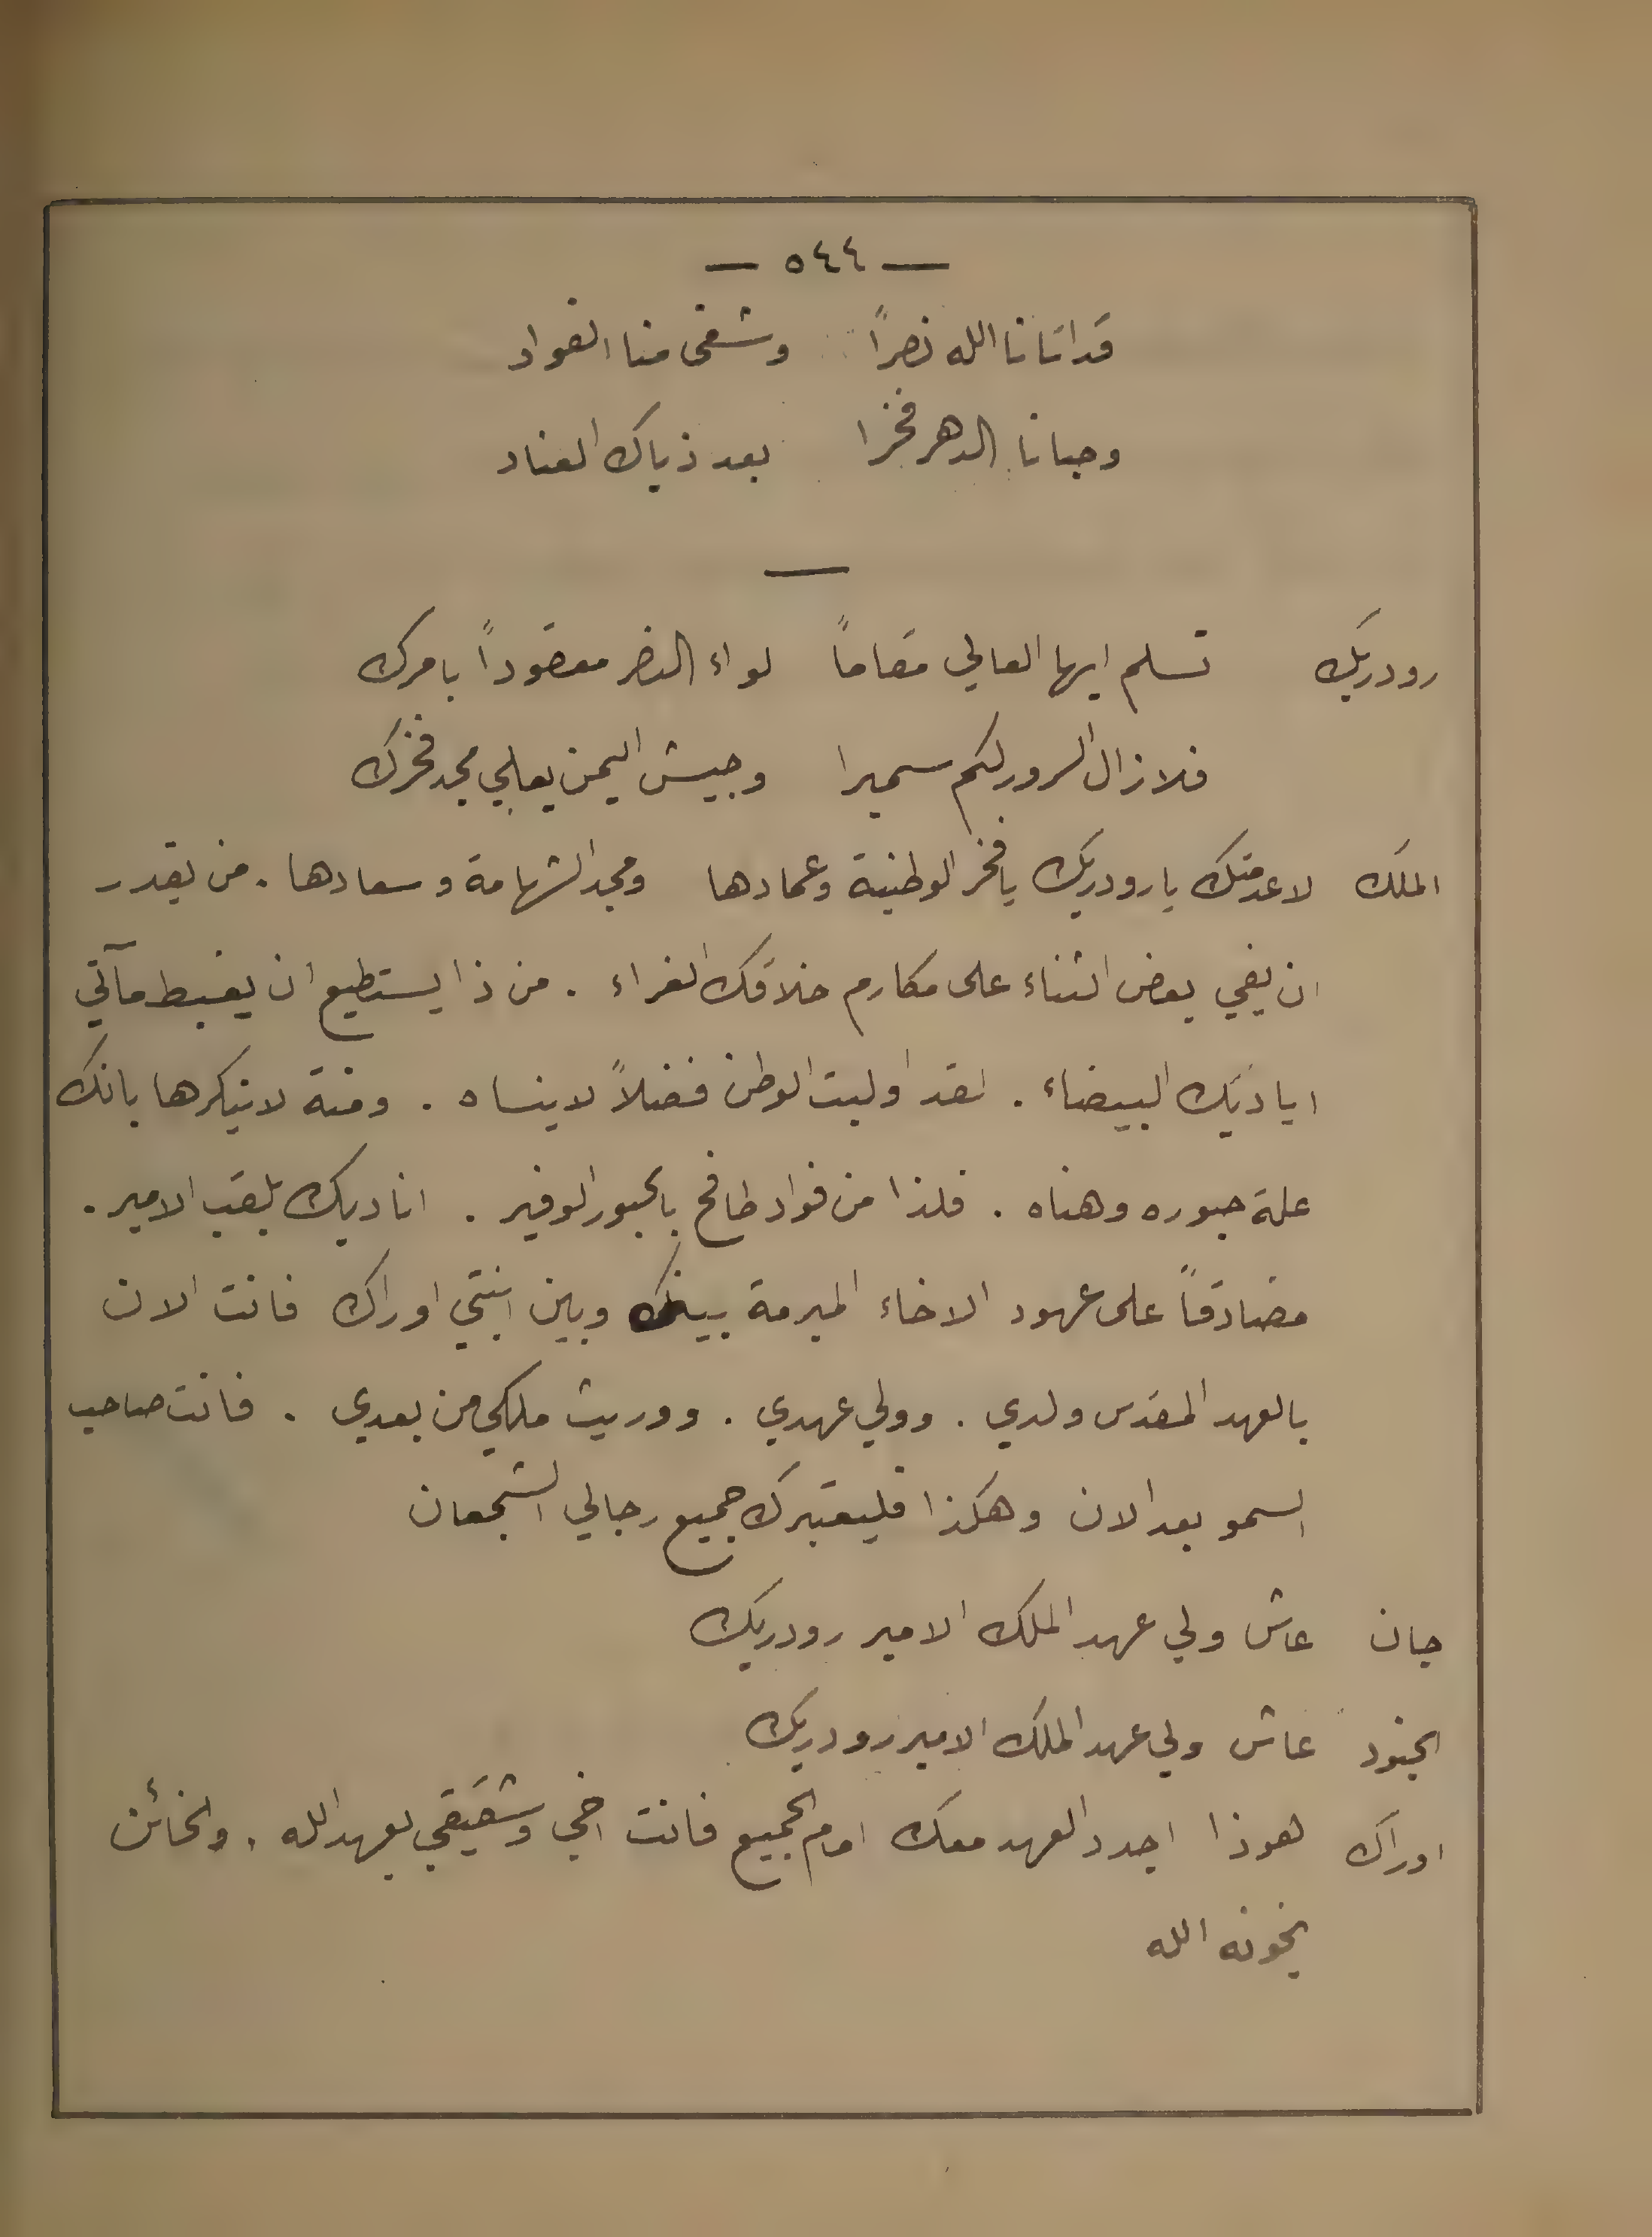 — ٥٤٤ —
قد اتانا الله نصراً وشفى منا الفواد
وحبانا الدهر فخرا بعد ذياك العناد
رودريك تسلم ايها العالي مقاماً لواء النصر معقوداً بامرك
فلازال السرور لكم سميرا وجيش اليمن يعلي مجد فخرك
الملك لاعدمتك يارودريك يافخر الوطنية وعمادها ومجد الشهامة وسعادها . من يقدر
ان يفي بعض الثناء على مكارم خلاقك الغراء . من ذا يستطيع ان يغبط مآتي
اياديك البيضاء . لقد اوليت الوطن فضلاً لاينساه . ومنة لاينكرها بانك
علة حبوره وهناه . فلذا من فواد طافح بالحبور الوفير . اناديك بلقب الامير .
مصادقاً على عهود الاخاء المبرمة بينك وبين ابنتي اوراك فانت الان
بالعهد المقدس ولدي . وولي عهدي . ووريث ملكي من بعدي . فانت صاحب
السمو بعد الان وهكذا فليعتبرك جميع رجالي الشجعان
جان عاش ولي عهد الملك الامير رودريك
الجنود عاش ولي عهد الملك الامير رودريك
اوراك هوذا اجدد العهد معك امام الجميع فانت اخي وشقيقي بعهد الله . والخائن
يخونه الله